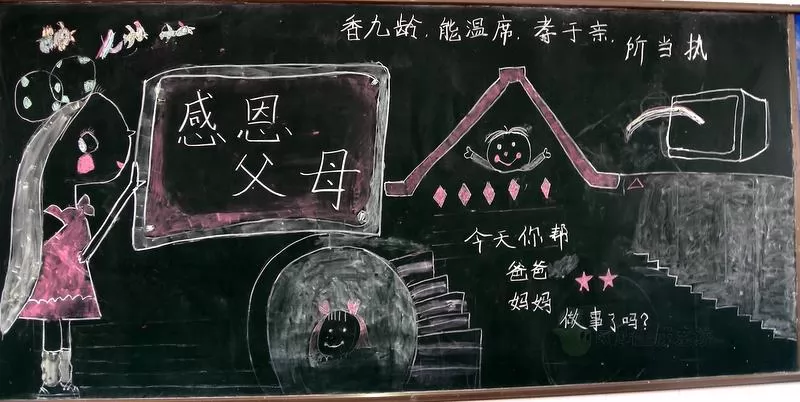 香九龄.能温席.孝于亲.所当执
感恩
父母
今天你帮
爸爸
妈妈
做事了吗?